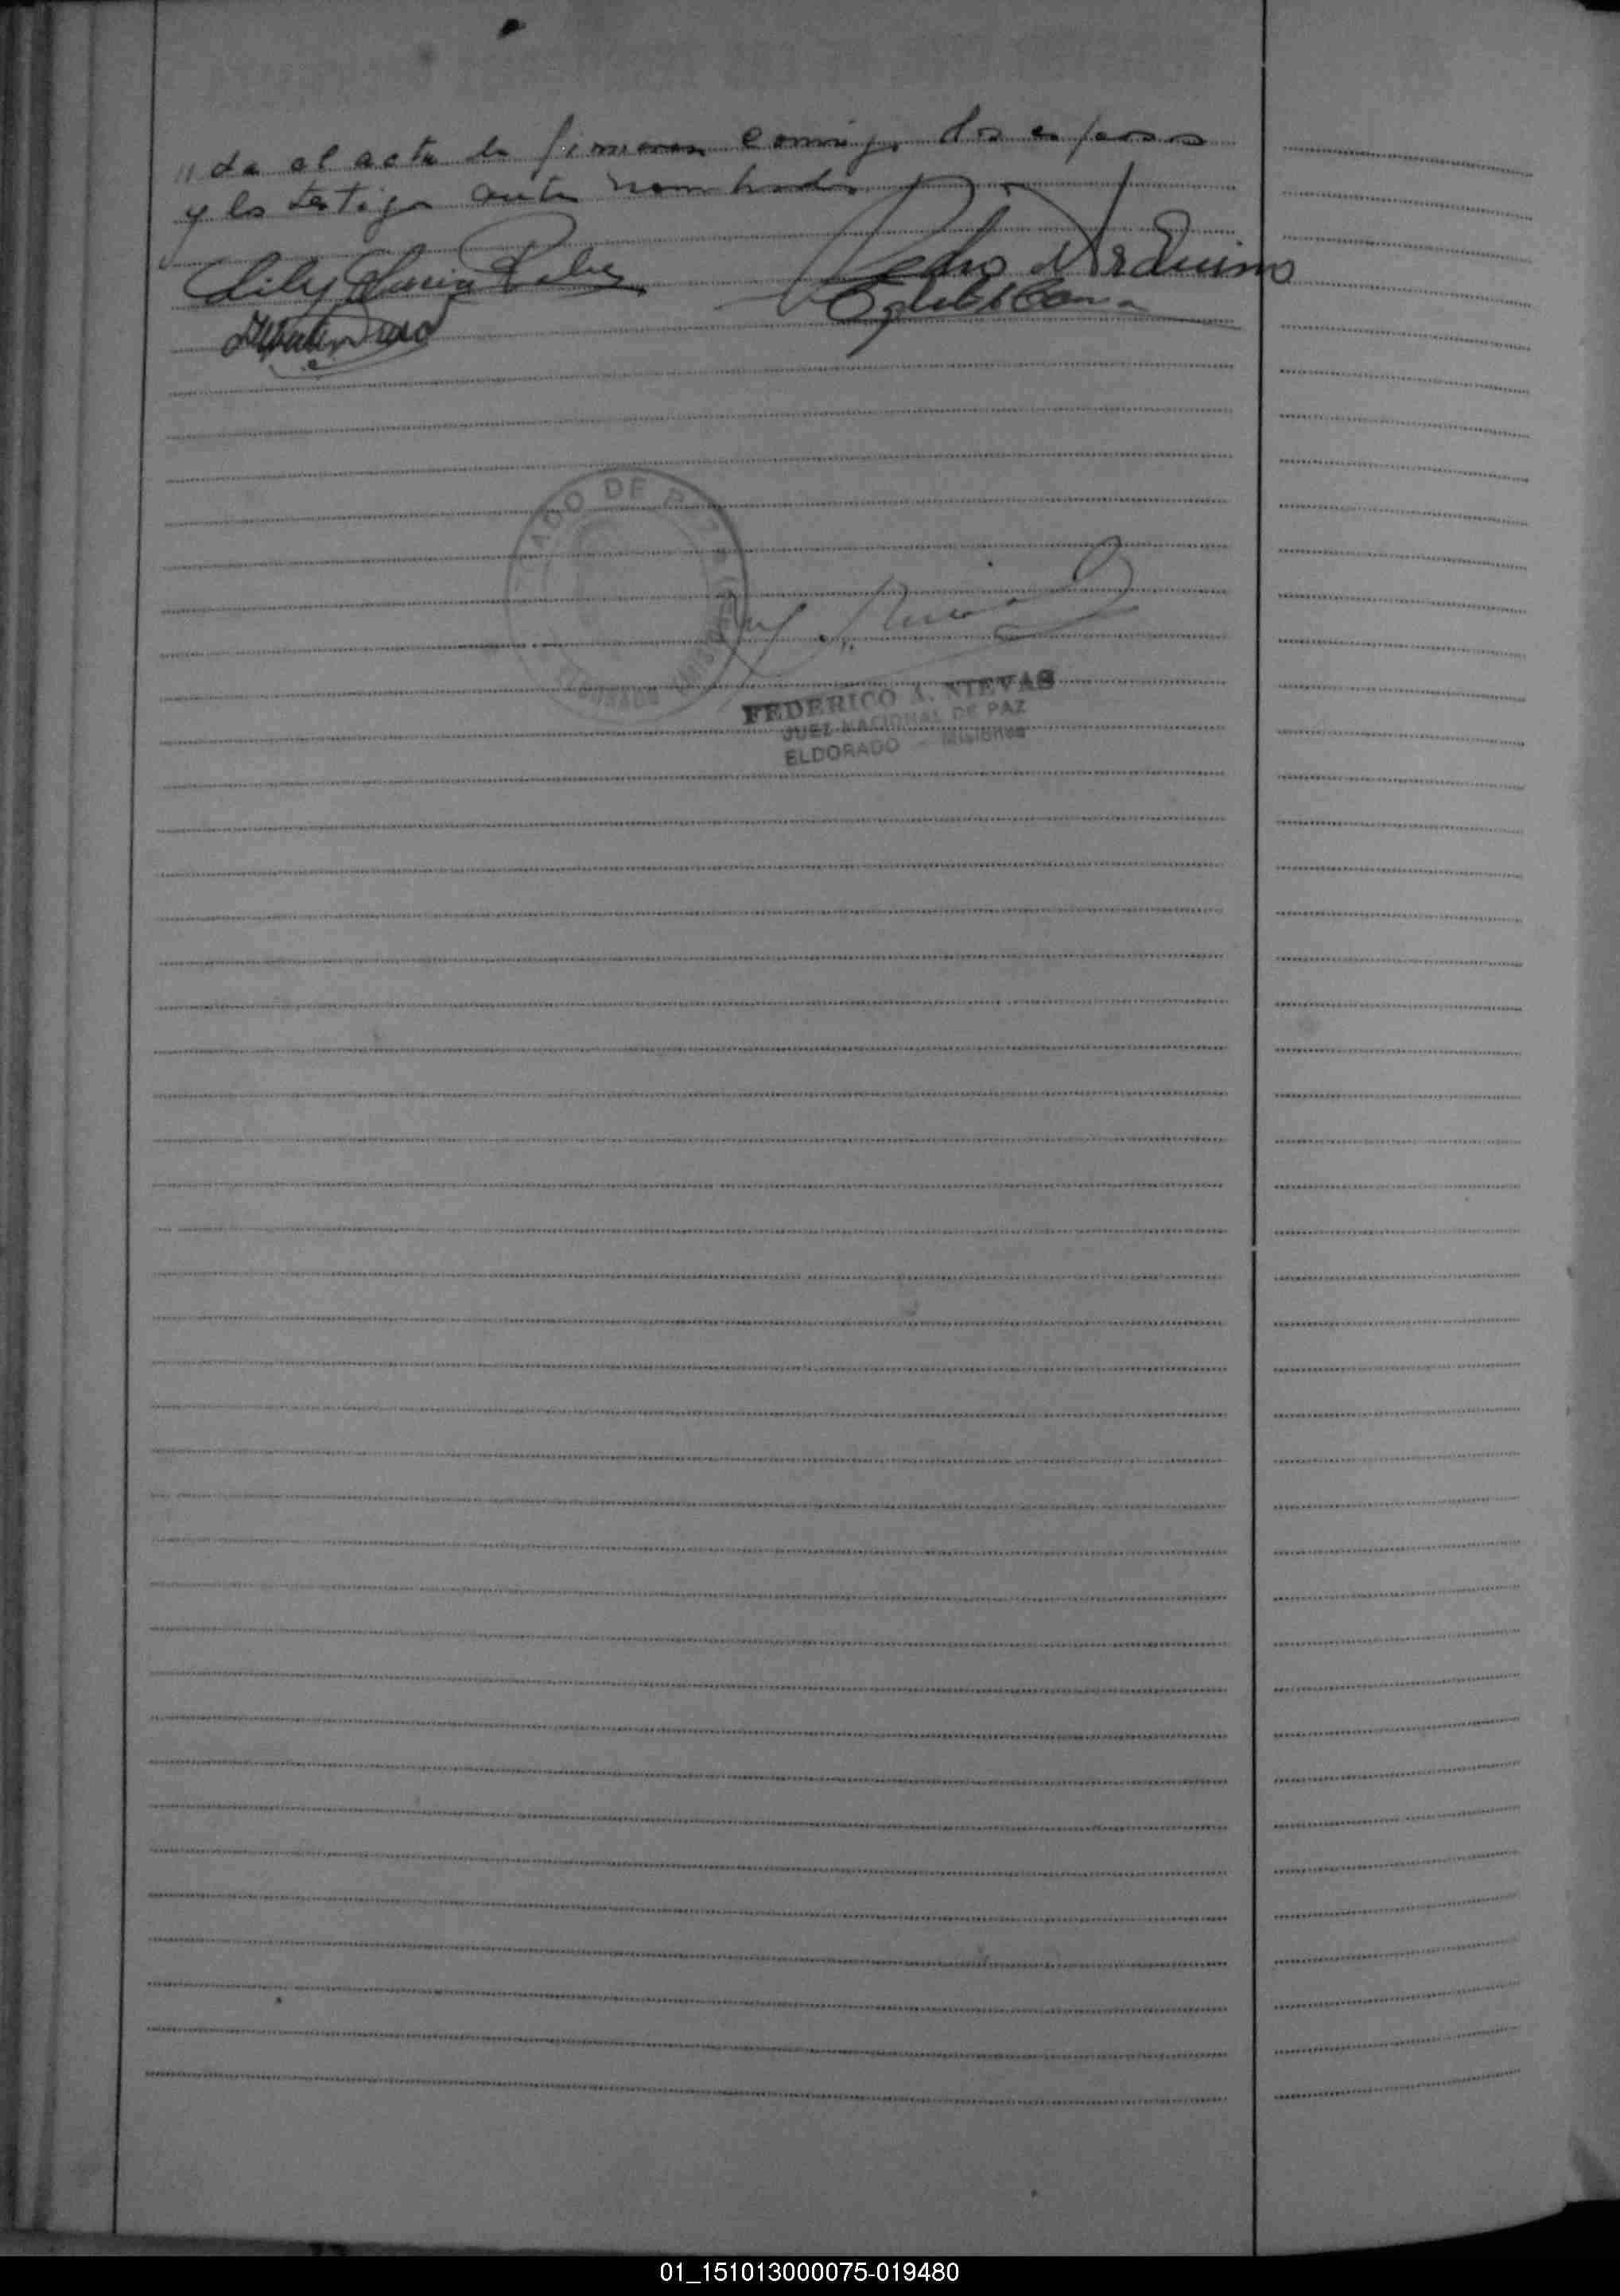 "da el acta la firmaron conmigo los esposos
y los testigos ante nombrados
Lily Maria
Pedro Arduino
ADO DE PAZ
ELDORADO (MISIONES)
FEDERICO A. NIEVAS
JUEZ NACIONAL DE PAZ
ELDORADO - Misiones
01_151013000075-019480